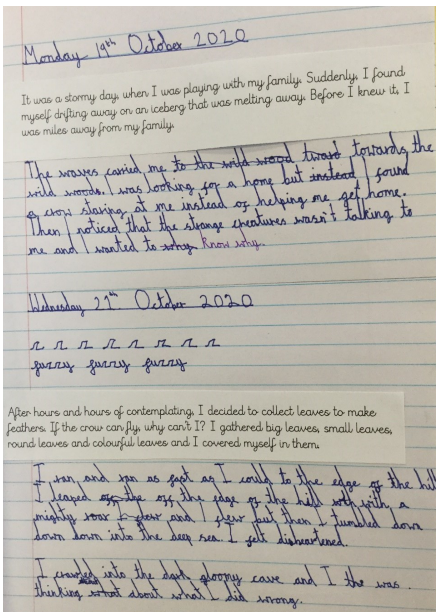 Monday 19th October 2020
It was a stormy day, when I was playing with my family. Suddenly, I found
myself drifting away on an iceberg that was melting away. Before I knew it, I
was miles away from my family.
The waves carried me to the wild wood toward towards the
wild woods. I was looking for a home but instead I found
a crow staring at me instead of helping me get home.
Then I noticed that the strange creatures wasn't talking to
me and I wanted to why. Know why.
Wednesday 21st October 2020
r r r r r r r r
fuzzy fuzzy fuzzy
After hours and hours of contemplating, I decided to collect leaves to make
feathers. If the crow can fly, why can't I? I gathered big leaves, small leaves,
round leaves and colourful leaves and I covered myself in them.
I ran and ran as fast as I could to the edge of the hill
I leaped the off the edge of the hill with with, a
mighty roar I flew and I flew but then I tumbled down
down down into the deep sea. I felt disheartened.
I crawled into the dark gloomy cave and I the was
thinking what about what I did wrong.